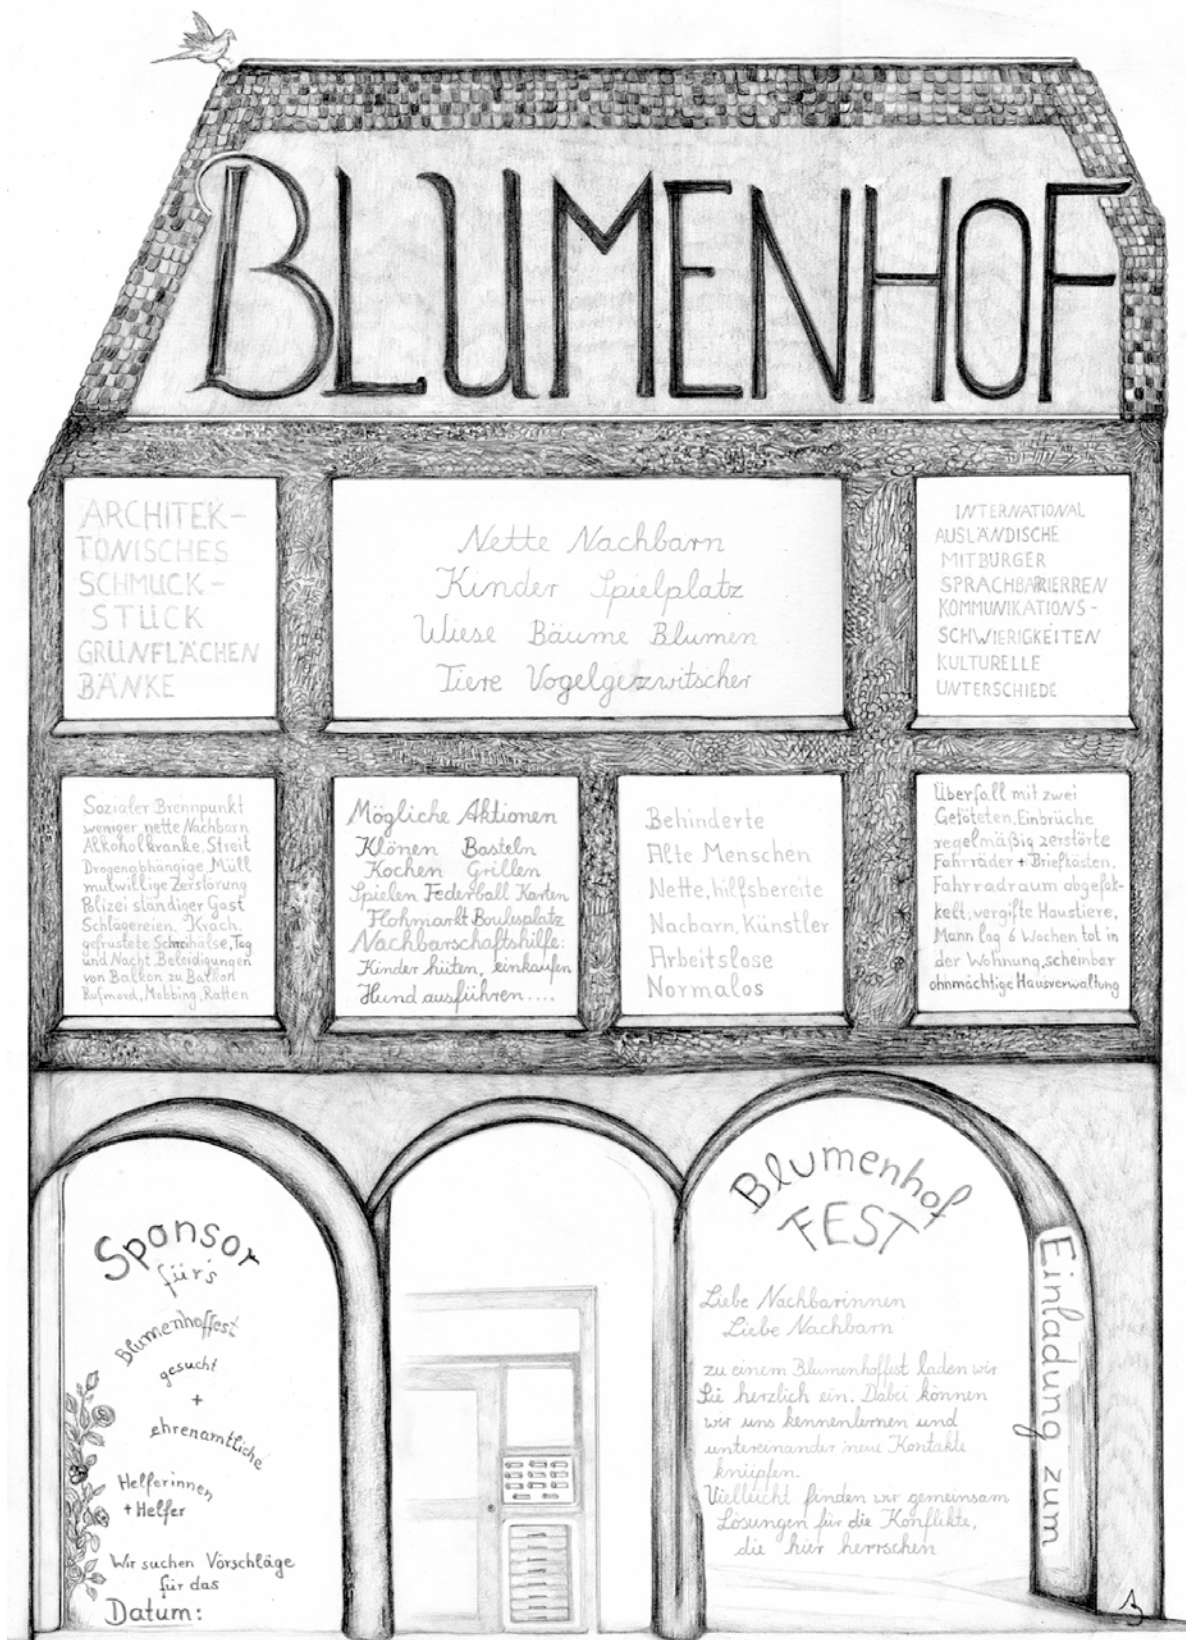 BLUMENHOF
ARCHITEK-
TONISCHES
SCHMUCK-
STÜCK
GRÜNFLÄCHEN
BÄNKE
Nette Nachbarn
Kinder Spielplatz
Wiese Bäume Blumen
Tiere Vogelgezwitscher
INTERNATIONAL
AUSLÄNDISCHE
MITBÜRGER
SPRACHBARIERREN
KOMMUNIKATIONS-
SCHWIERIGKEITEN
KULTURELLE
UNTERSCHIEDE
Sozialer Brennpunkt
weniger nette Nachbarn
Alkoholkranke, Streit
Drogenabhängige, Müll
mutwillige Zerstörung
Polizei ständiger Gast
Schlägereien, Krach,
gefrustete Schreihälse, Tag
und Nacht Beleidigungen
von Balkon zu Balkon
Rufmord, Mobbing, Ratten
Mögliche Aktionen
Klönen Basteln
Kochen Grillen
Spielen Federball Karten
Flohmarkt Boulesplatz
Nachbarschaftshilfe:
Kinder hüten, einkaufen
Hund ausführen....
Behinderte
Alte Menschen
Nette, hilfsbereite
Nacbarn, Künstler
Arbeitslose
Normalos
Überfall mit zwei
Getöteten, Einbrüche
regelmäßig zerstörte
Fahrräder + Briefkästen,
Fahrradraum abgefak-
kelt, vergifte Haustiere,
Mann lag 6 Wochen tot in
der Wohnung, scheinbar
ohnmächtige Hausverwaltung
Sponsor
für's
Blumenhoffest
gesucht
+
ehrenamtliche
Helferinnen
+ Helfer
Wir suchen Vorschläge
für das
Datum:
Einladung zum
Blumenhof
FEST
Liebe Nachbarinnen
Liebe Nachbarn
zu einem Blumenhoffest laden wir
Sie herzlich ein. Dabei können
wir uns kennenlernen und
untereinander neue Kontakte
knüpfen.
Vielleicht finden wir gemeinsam
Lösungen für die Konflikte,
die hier herrschen